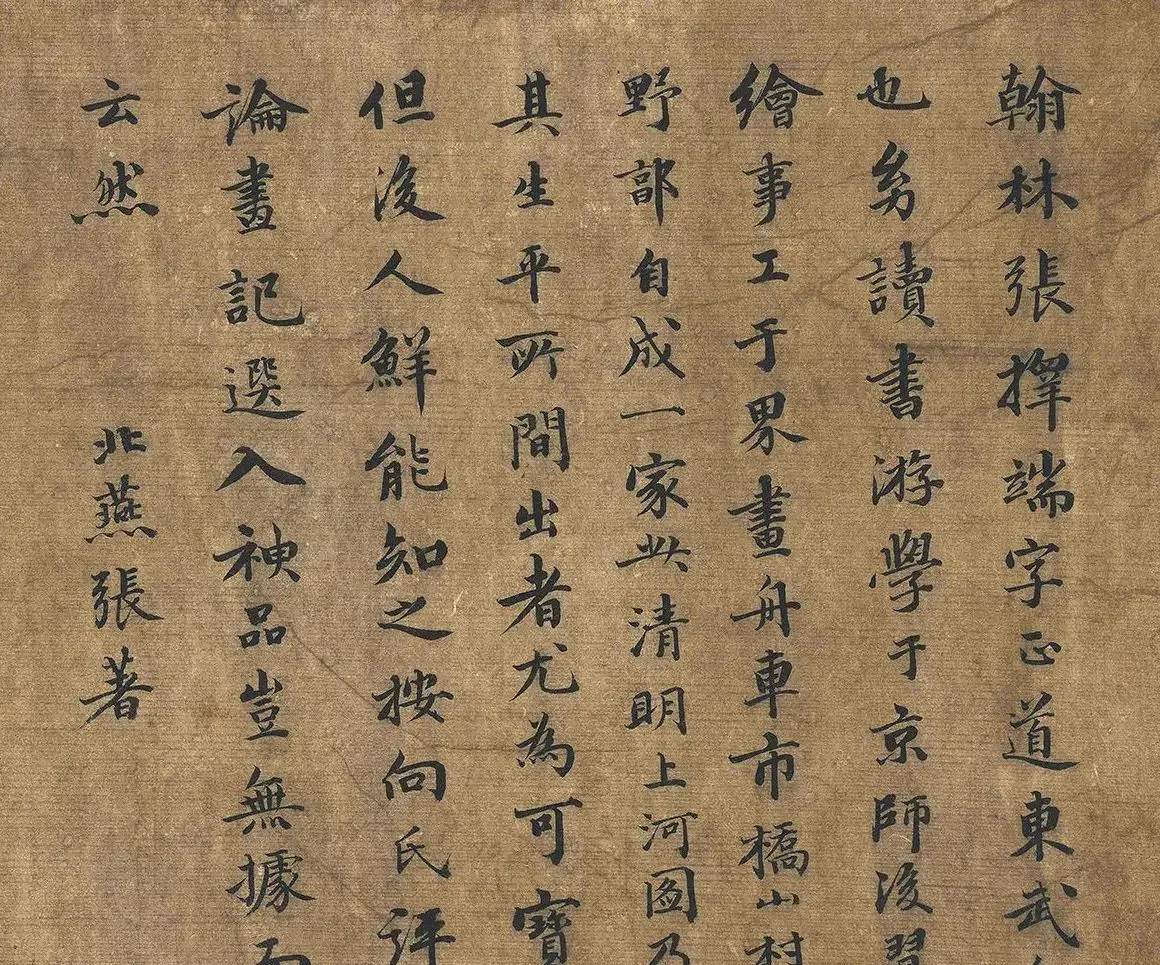 翰林張擇端字正道東武
也幼讀書游學于京師後習
繪事工于界畫舟車市橋山村
野郡自成一家此清明上河圖乃
其生平所間出者尤為可寶
但後人鮮能知之按向氏評
論畫記選入神品豈無據而
云然
北燕張著